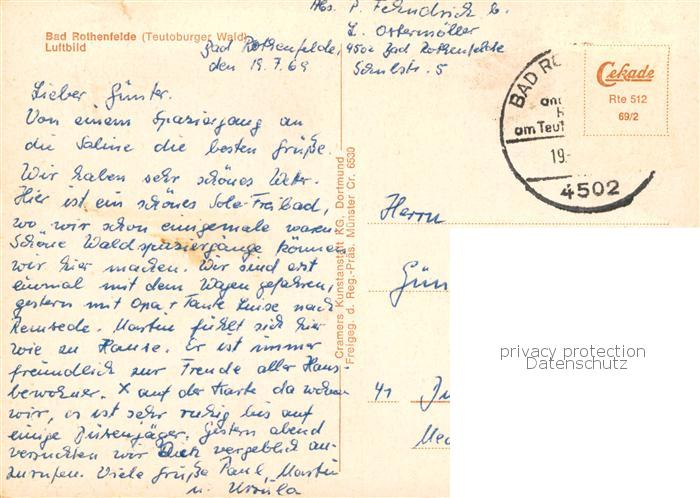 Bad Rothenfelde (Teutoburger Wald)
Luftbild
Abs. P. Fehndrich b.
L. Ostermöller
4502 Bad Rothenfelde
Schulstr. 5
Bad Rothenfelde,
den 19.7.69
Lieber Günter.
Von einem Spaziergang an
die Saline die besten Grüße.
Wir haben sehr schönes Wetter.
Hier ist ein schönes Sole-Freibad,
wo wir schon einigemale waren.
Schöne Waldspaziergänge können
wir hier machen. Wir sind erst
einmal mit dem Wagen gefahren,
gestern mit Opa + Tante Luise nach
Remsede. Martin fühlt sich hier
wie zu Hause. Er ist immer
freundlich zur Freude aller Haus-
bewohner. X auf der Karte da wohnen
wir, es ist sehr ruhig bis auf
einige Düsenjäger. Gestern abend
versuchten wir Dich vergeblich an-
zurufen. Viele Grüße Paul, Martin
u. Ursula
Cramers Kunstanstalt KG, Dortmund
Freigeg. d. Reg.-Präs. Münster Cr. 6530
Cekade
Rte 512
69/2
BAD RO
am Teut
19.-
4502
Herrn
Gün
41
privacy protection
Datenschutz